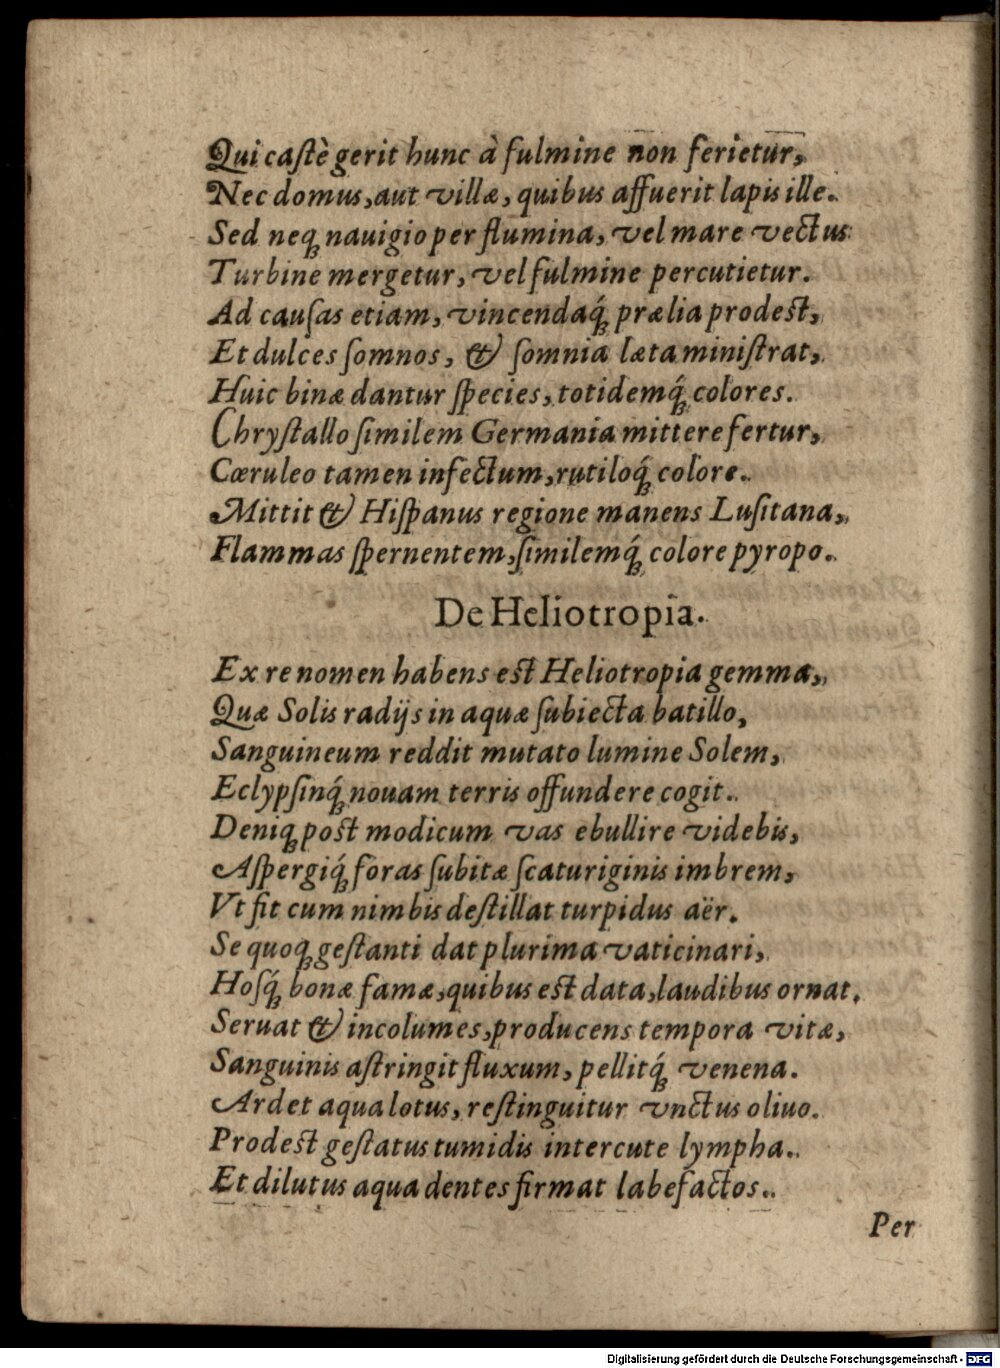 Qui castè gerit hunc à fulmine non ferietur,
Nec domus, aut villæ, quibus affuerit lapis ille.
Sed neq; nauigio per flumina, vel mare vectus
Turbine mergetur, vel fulmine percutietur.
Ad causas etiam, vincendaq́; prælia prodest,
Et dulces somnos, & somnia læta ministrat,
Huic binæ dantur species, totidemq́; colores.
Chrystallo similem Germania mittere fertur,
Cœruleo tamen infectum, rutiloq́; colore.
Mittit & Hispanus regione manens Lusitana,
Flammas spernentem, similemq́; colore pyropo.
De Heliotropia.
Ex re nomen habens est Heliotropia gemma,
Quæ Solis radijs in aquæ subiecta batillo,
Sanguineum reddit mutato lumine Solem,
Eclypsinq́; nouam terris offundere cogit.
Deniq; post modicum vas ebullire videbis,
Aspergiq́; foras subitæ scaturiginis imbrem,
Vt fit cum nimbis destillat turpidus aër.
Se quoq; gestanti dat plurima vaticinari,
Hosq́; bonæ famæ, quibus est data, laudibus ornat,
Seruat & incolumes, producens tempora vitæ,
Sanguinis astringit fluxum, pellitq́; venena.
Ardet aqua lotus, restinguitur vnctus oliuo.
Prodest gestatus tumidis intercute lympha.
Et dilutus aqua dentes firmat labefactos.
Per
Digitalisierung gefördert durch die Deutsche Forschungsgemeinschaft - DFG